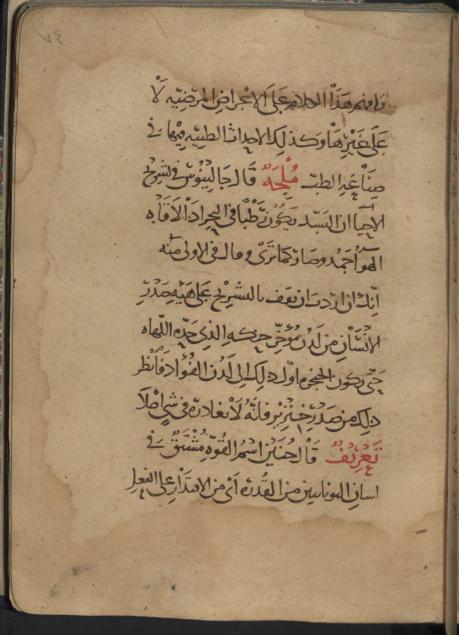 ٧٤
وافهم هذا الكلام على الاعراض المرضيه لا
على غيرها وكذلك الاحداث الطبيه فيها في
صناعه الطب مُلْحَة قال جالينوس في تشريح
الاحيا ان السد يكون رطبا في البحر اذا لاقا به
الهوا جمد وصار كما ترى وقال في الاولى منه
انك ان اردت ان تقف بالتشريح على هيئه صدر
الانسان من لدن مؤخر حنكه الذي حده اللهاه
حتى يكون الحنجره اول ذلك الى لدن الفؤاد فانظر
ذلك من صدر خنزير فانه لا يغادره في شي اصلا
تعريف قال حنين اسم القوه مشتق في
لسان اليونانيين من القدره اى من الاقتدار على الفعل